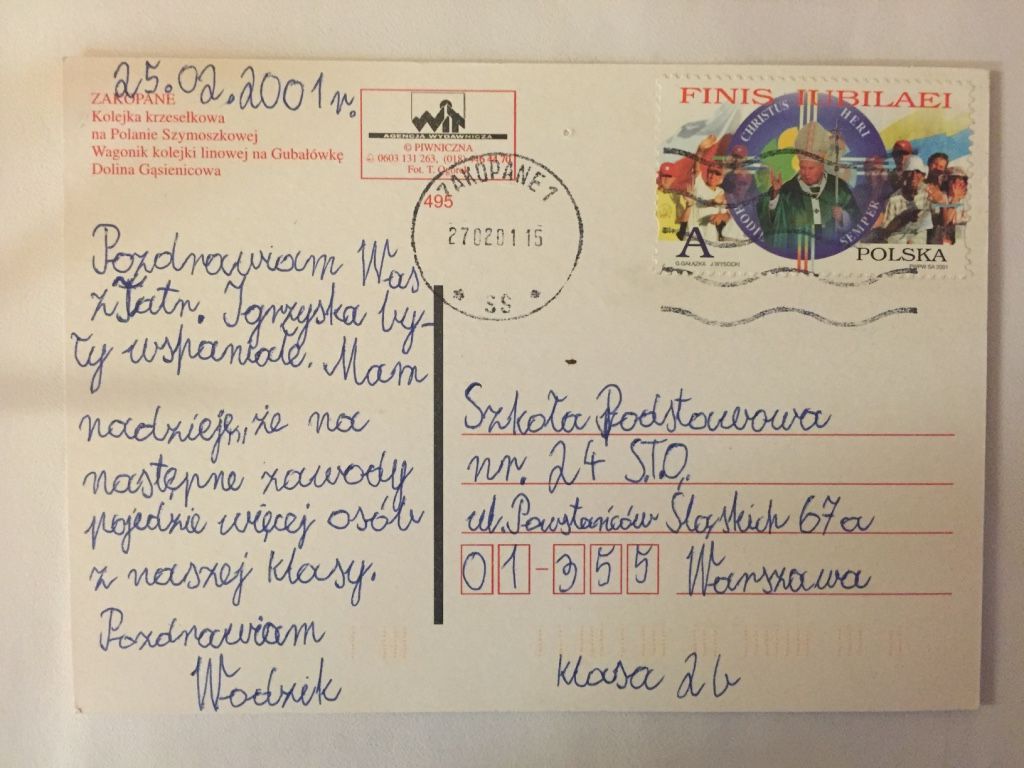 25.02.2001r.
ZAKOPANE
Kolejka krzesełkowa
na Polanie Szymoszkowej
Wagonik kolejki linowej na Gubałówkę
Dolina Gąsienicowa
AGENCJA WYDAWNICZA
© PIWNICZNA
0603 131 263, (018)
Fot. T.
495
ZAKOPANE 1
270201 15
* SS *
FINIS IUBILAEI
CHRISTUS HERI
HODIE SEMPER
A
POLSKA
G.GAŁĄZKA J.WYSOCKI
PWPW SA 2001
Pozdrawiam Was
z Tatr. Igrzyska by-
ły wspaniałe. Mam
nadzieję, że na
następne zawody
pojedzie więcej osób
z naszej klasy.
Pozdrawiam
Wodzik
Szkoła Podstawowa
nr. 24 S.T.O.
ul. Powstańców Śląskich 67a
01-355 Warszawa
klasa 2b